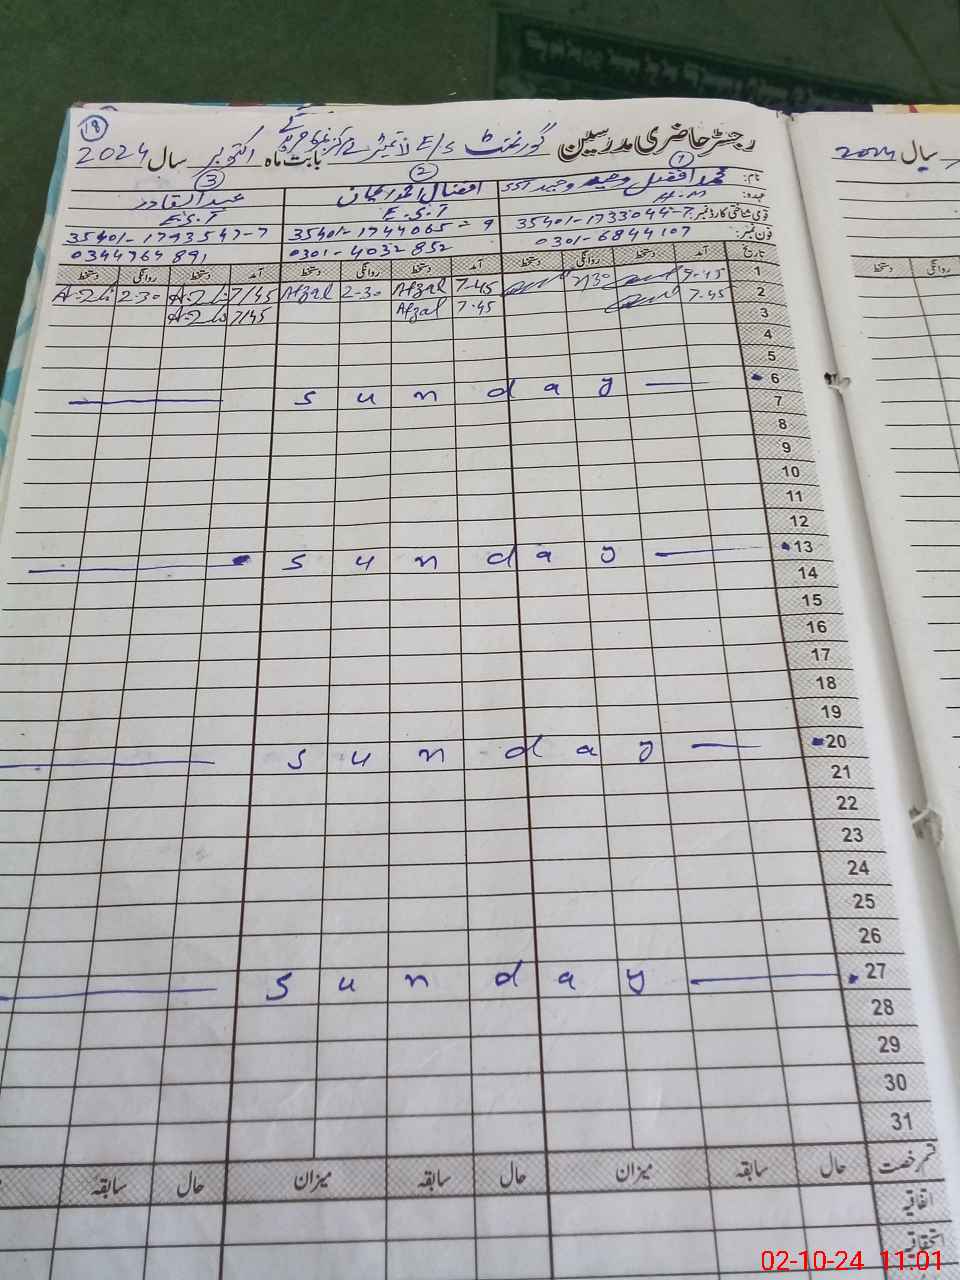 رجسٹر حاضری مدرسین گورنمنٹ E/S بابت ماہ اکتوبر سال 2024
18
سال 2024
① ② ③
نام: محمد افضل وحید SST افضال احمد خان عبدالقادر
عہدہ: H.M E.S.T E.S.T
قومی شناختی کارڈ نمبر: 35401-1733044-7 35401-1744065-9 35401-1793547-7
فون نمبر: 0301-6844107 0301-4032852 0344764891
تاریخ آمد دستخط روانگی دستخط آمد دستخط روانگی دستخط آمد دستخط روانگی دستخط
روانگی دستخط
1 7.45 Afzal 2-30 Afzal 7/45 2-30
2 7.45 7.45 Afzal 7/45
3
4
5
6 Sunday
7
8
9
10
11
12
13 Sunday
14
15
16
17
18
19
20 Sunday
21
22
23
24
25
26
27 Sunday
28
29
30
31
قسم رخصت حال سابقہ میزان حال سابقہ میزان حال سابقہ
اتفاقیہ
استحقاقیہ
02-10-24 11:01